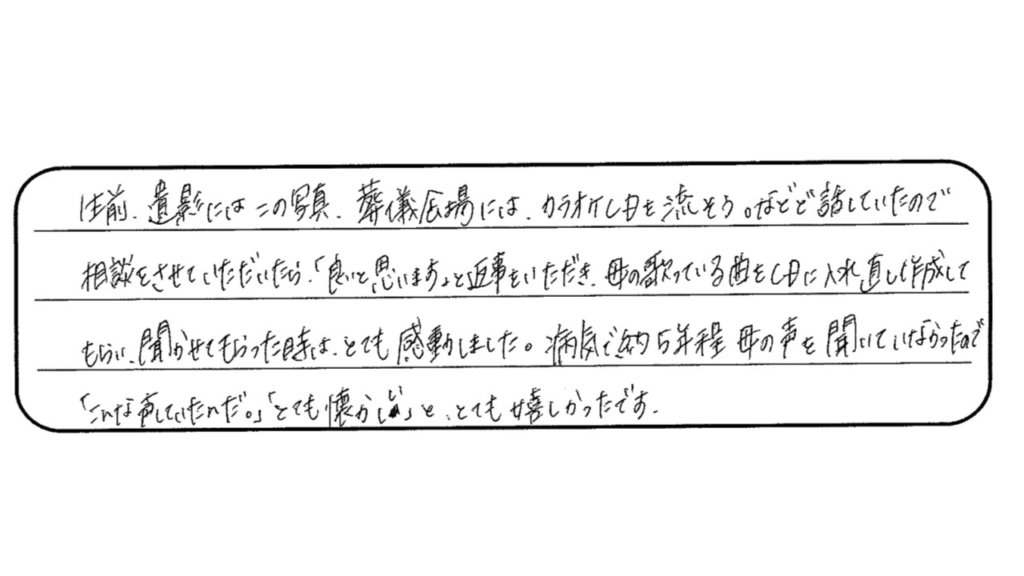 生前、遺影にはこの写真、葬儀広場には、カラオケCDを流そう。などど話していたので
相談をさせていただいたら、「良いと思います」と返事をいただき、母の歌っている曲をCDに入れ直して作成して
もらい、聞かせてもらった時は、とても感動しました。病気で約5年程母の声を聞いていなかったので
「こんな声していたんだ。」「とても懐かしい」と、とても嬉しかったです。